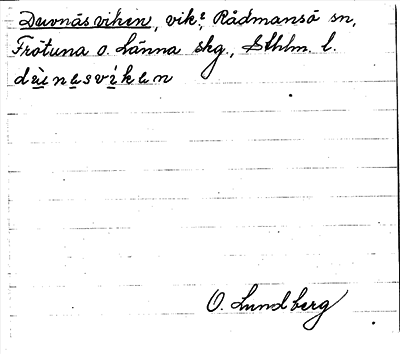 Duvnäsviken, vik?, Rådmansö sn,
Frötuna o. Länna skg., Sthlm. l.
dùnɐsvikɐn
O. Lundberg